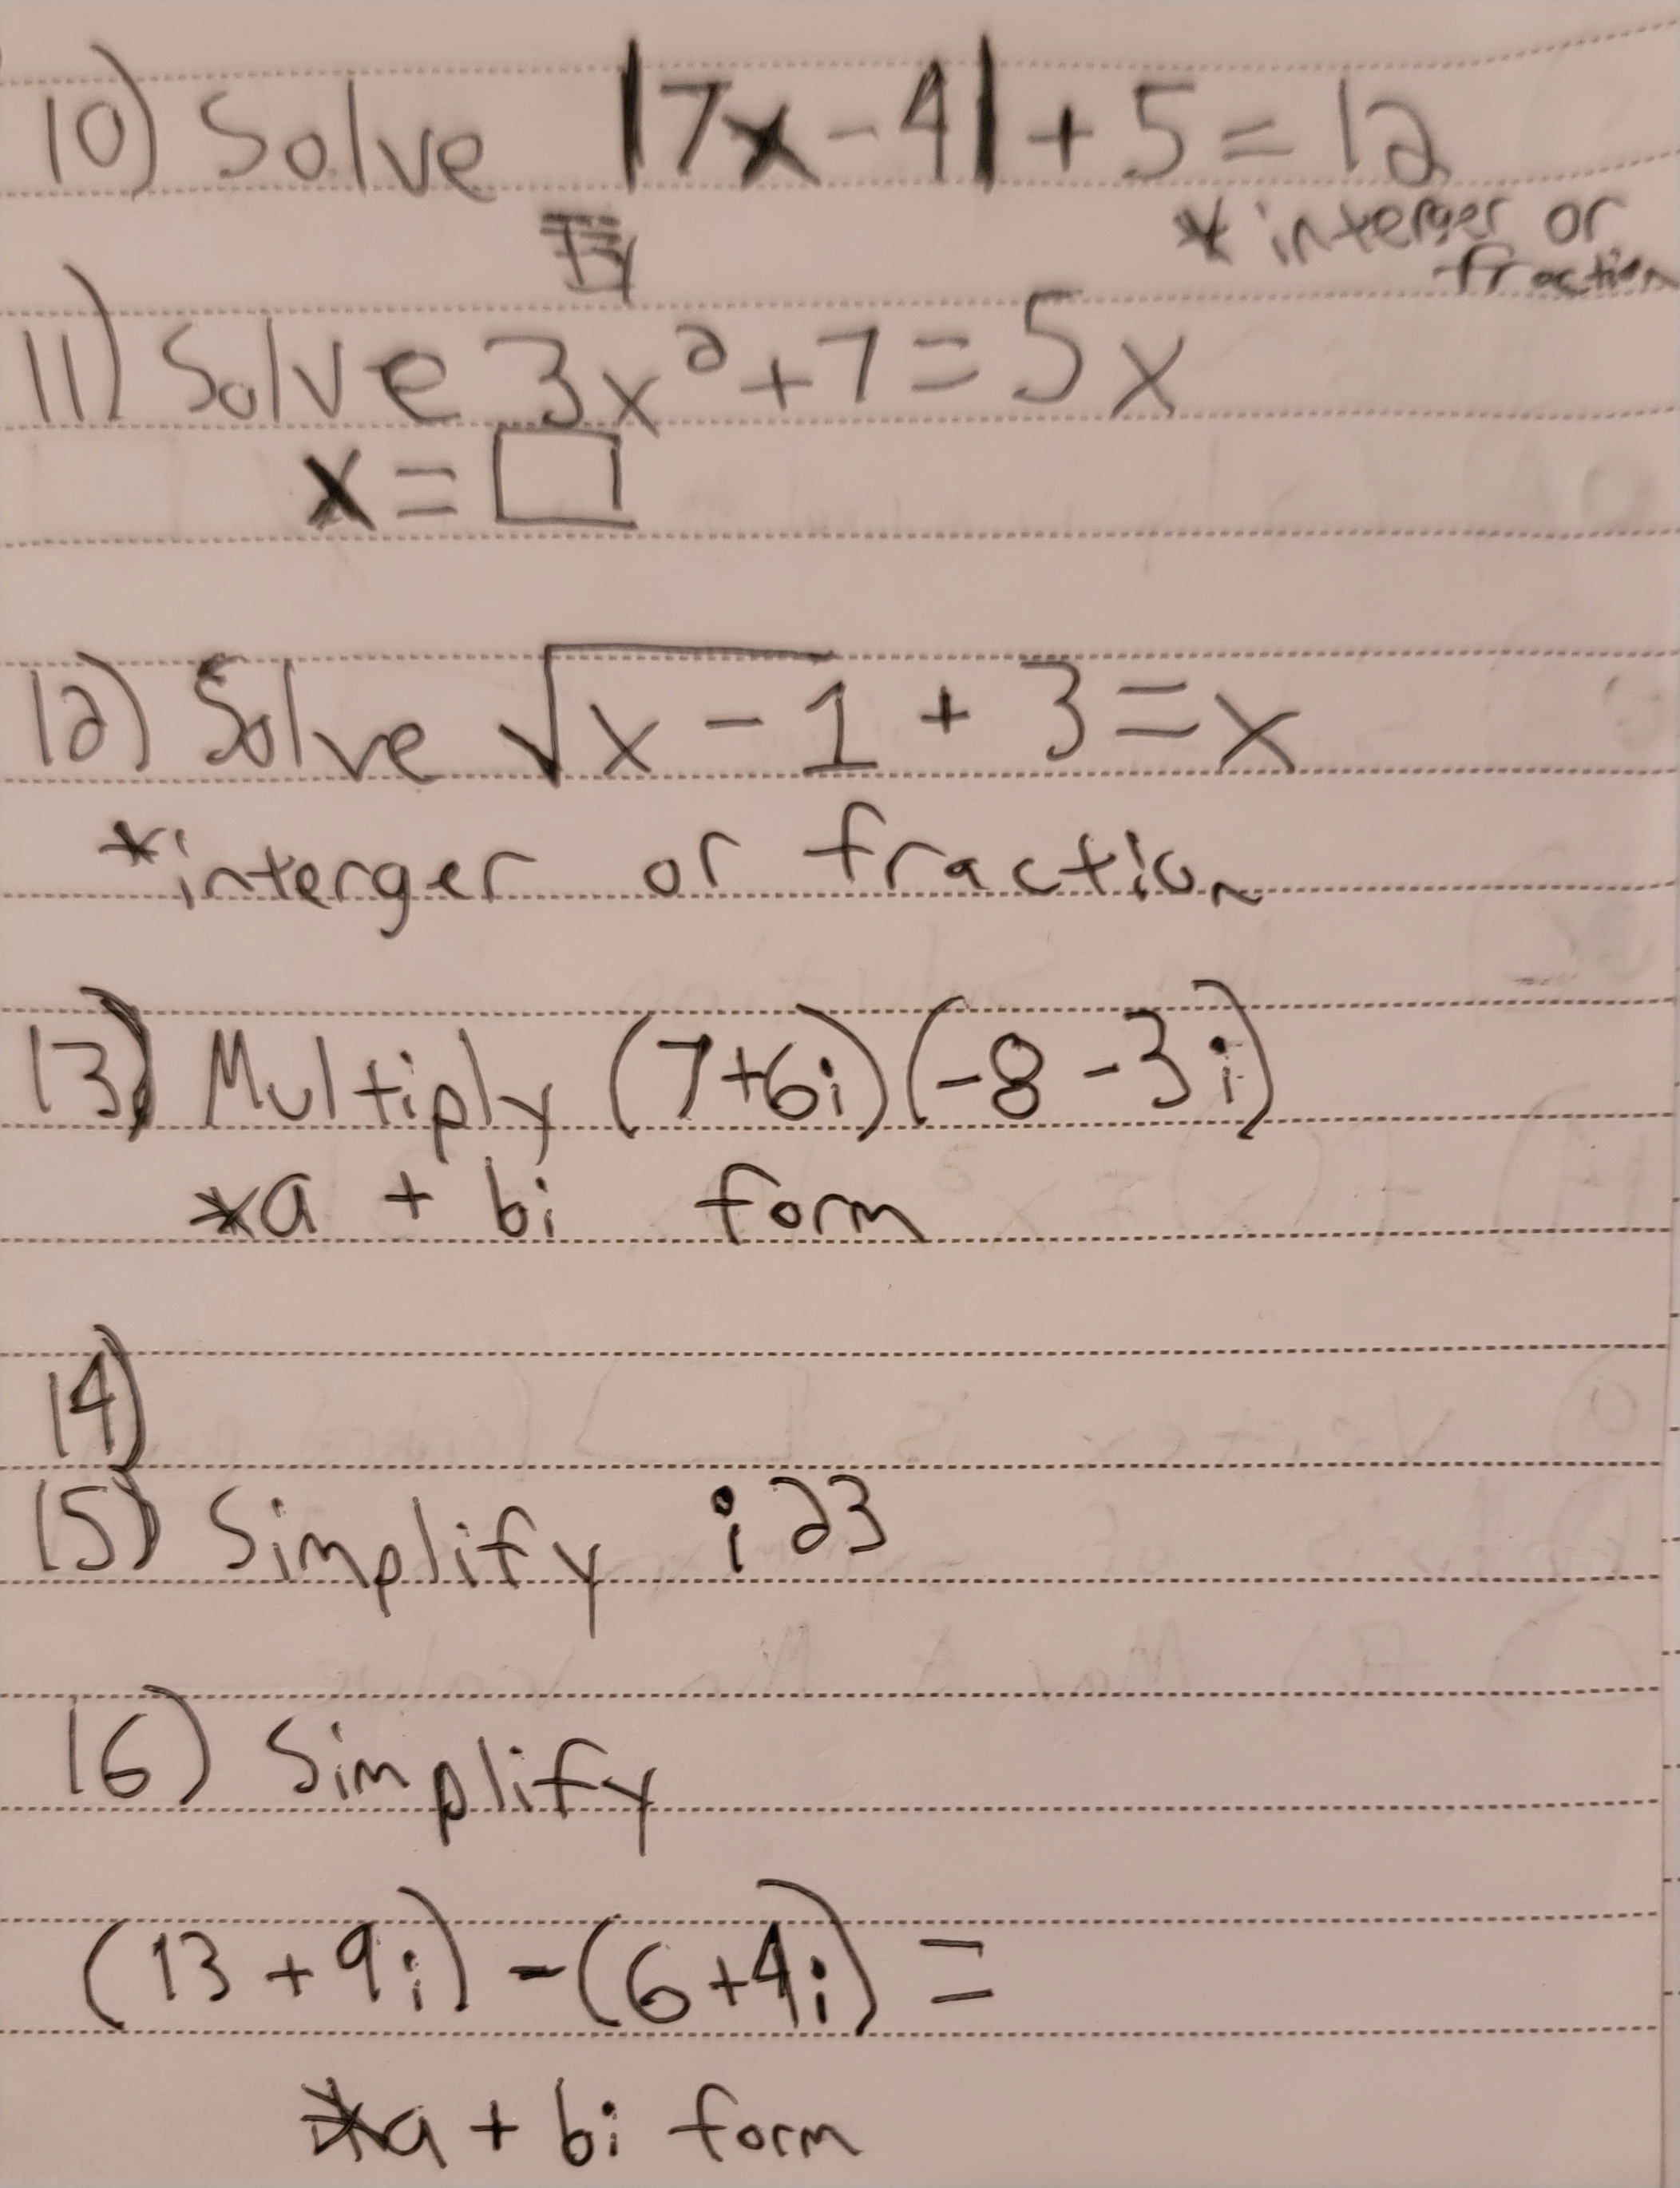 10) Solve |7x-4| + 5 = 12
* interger or
fraction
11) Solve 3x² + 7 = 5x
x = □
12) Solve √x - 1 + 3 = x
*interger or fraction
13) Multiply (7+6i)(-8-3i)
*a + bi form
14)
15) Simplify i23
16) Simplify
(13 + 9i) - (6+4i) =
*a + bi form